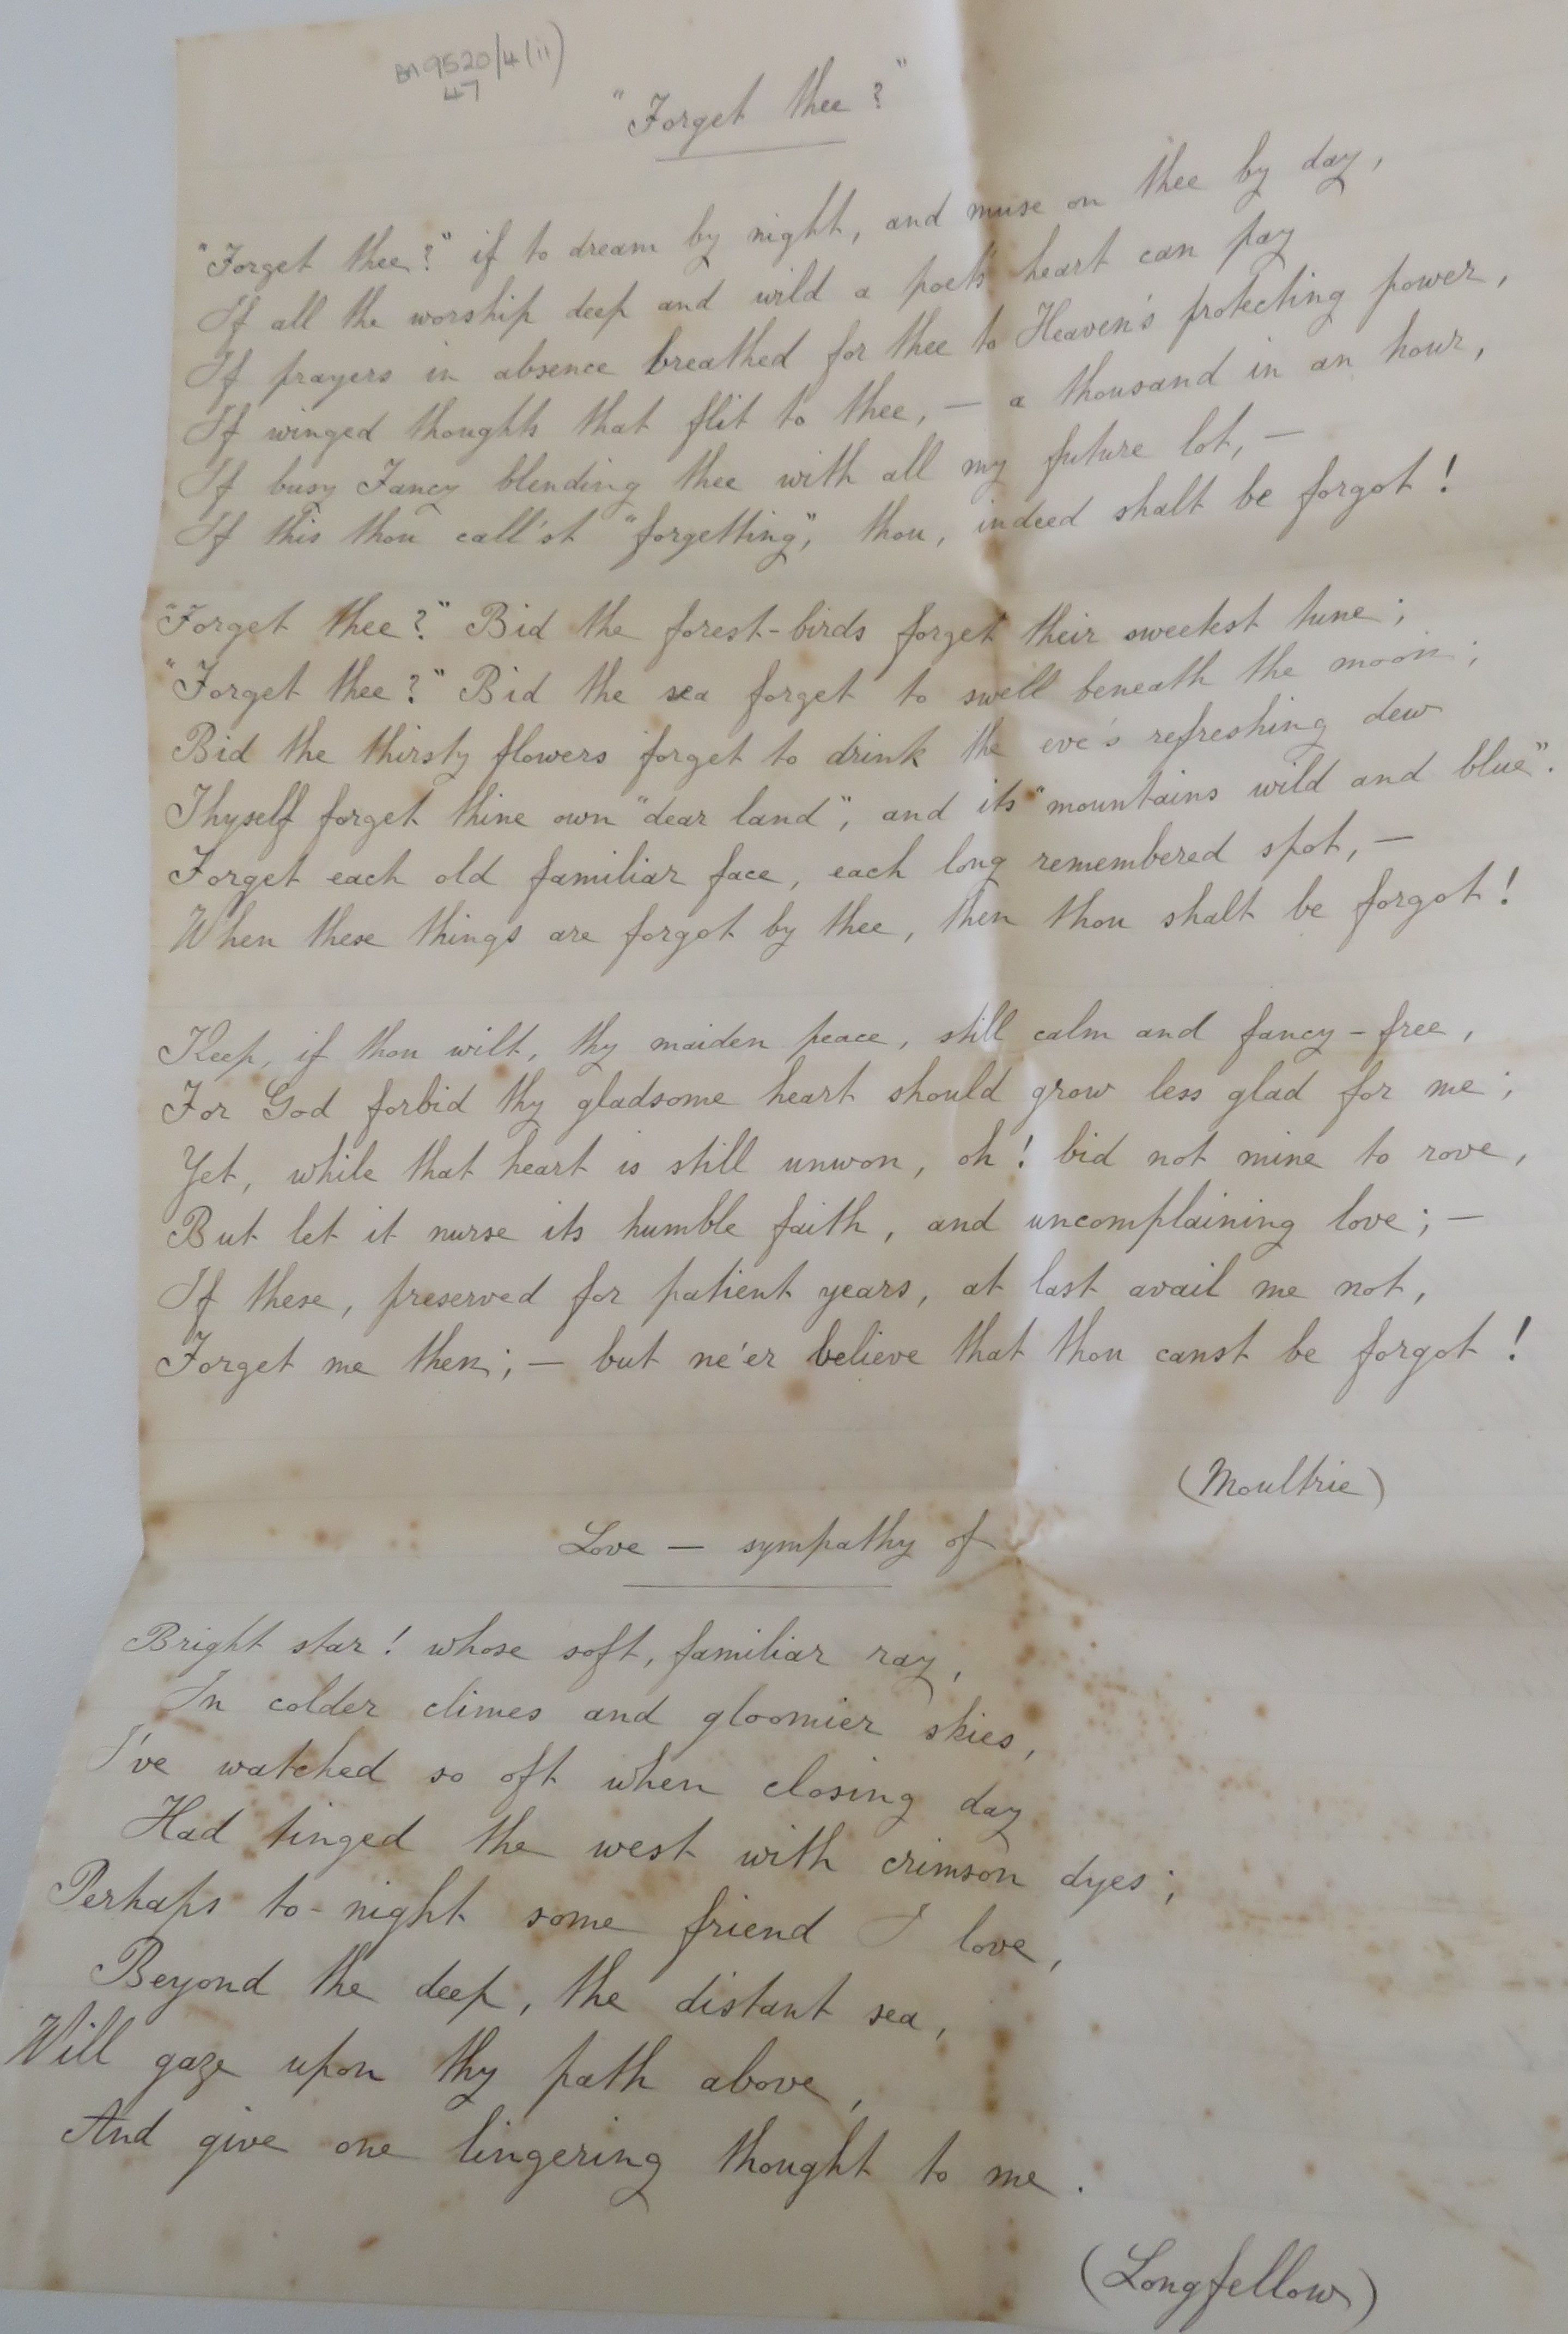 BA9520/4(ii)
47
"Forget thee?"
"Forget thee?" if to dream by night, and muse on thee by day,
If all the worship deep and wild a poet's heart can pay
If prayers in absence breathed for thee to Heaven's protecting power,
If winged thoughts that flit to thee, — a thousand in an hour,
If busy Fancy blending thee with all my future lot, —
If this thou call'st "forgetting", thou, indeed shalt be forgot!
"Forget thee?" Bid the forest-birds forget their sweetest tune;
"Forget thee?" Bid the sea forget to swell beneath the moon;
Bid the thirsty flowers forget to drink the eve's refreshing dew
Thyself forget thine own "dear land", and its "mountains wild and blue".
Forget each old familiar face, each long remembered spot, —
When these things are forgot by thee, then thou shalt be forgot!
Keep, if thou wilt, thy maiden peace, still calm and fancy-free,
For God forbid thy gladsome heart should grow less glad for me;
Yet, while that heart is still unwon, oh! bid not mine to rove,
But let it nurse its humble faith, and uncomplaining love; —
If these, preserved for patient years, at last avail me not,
Forget me then; — but ne'er believe that thou canst be forgot!
(Moultrie)
Love — sympathy of
Bright star! whose soft, familiar ray,
In colder climes and gloomier skies,
I've watched so oft when closing day
Had tinged the west with crimson dyes;
Perhaps to-night some friend I love,
Beyond the deep, the distant sea,
Will gaze upon thy path above,
And give one lingering thought to me.
(Longfellow)